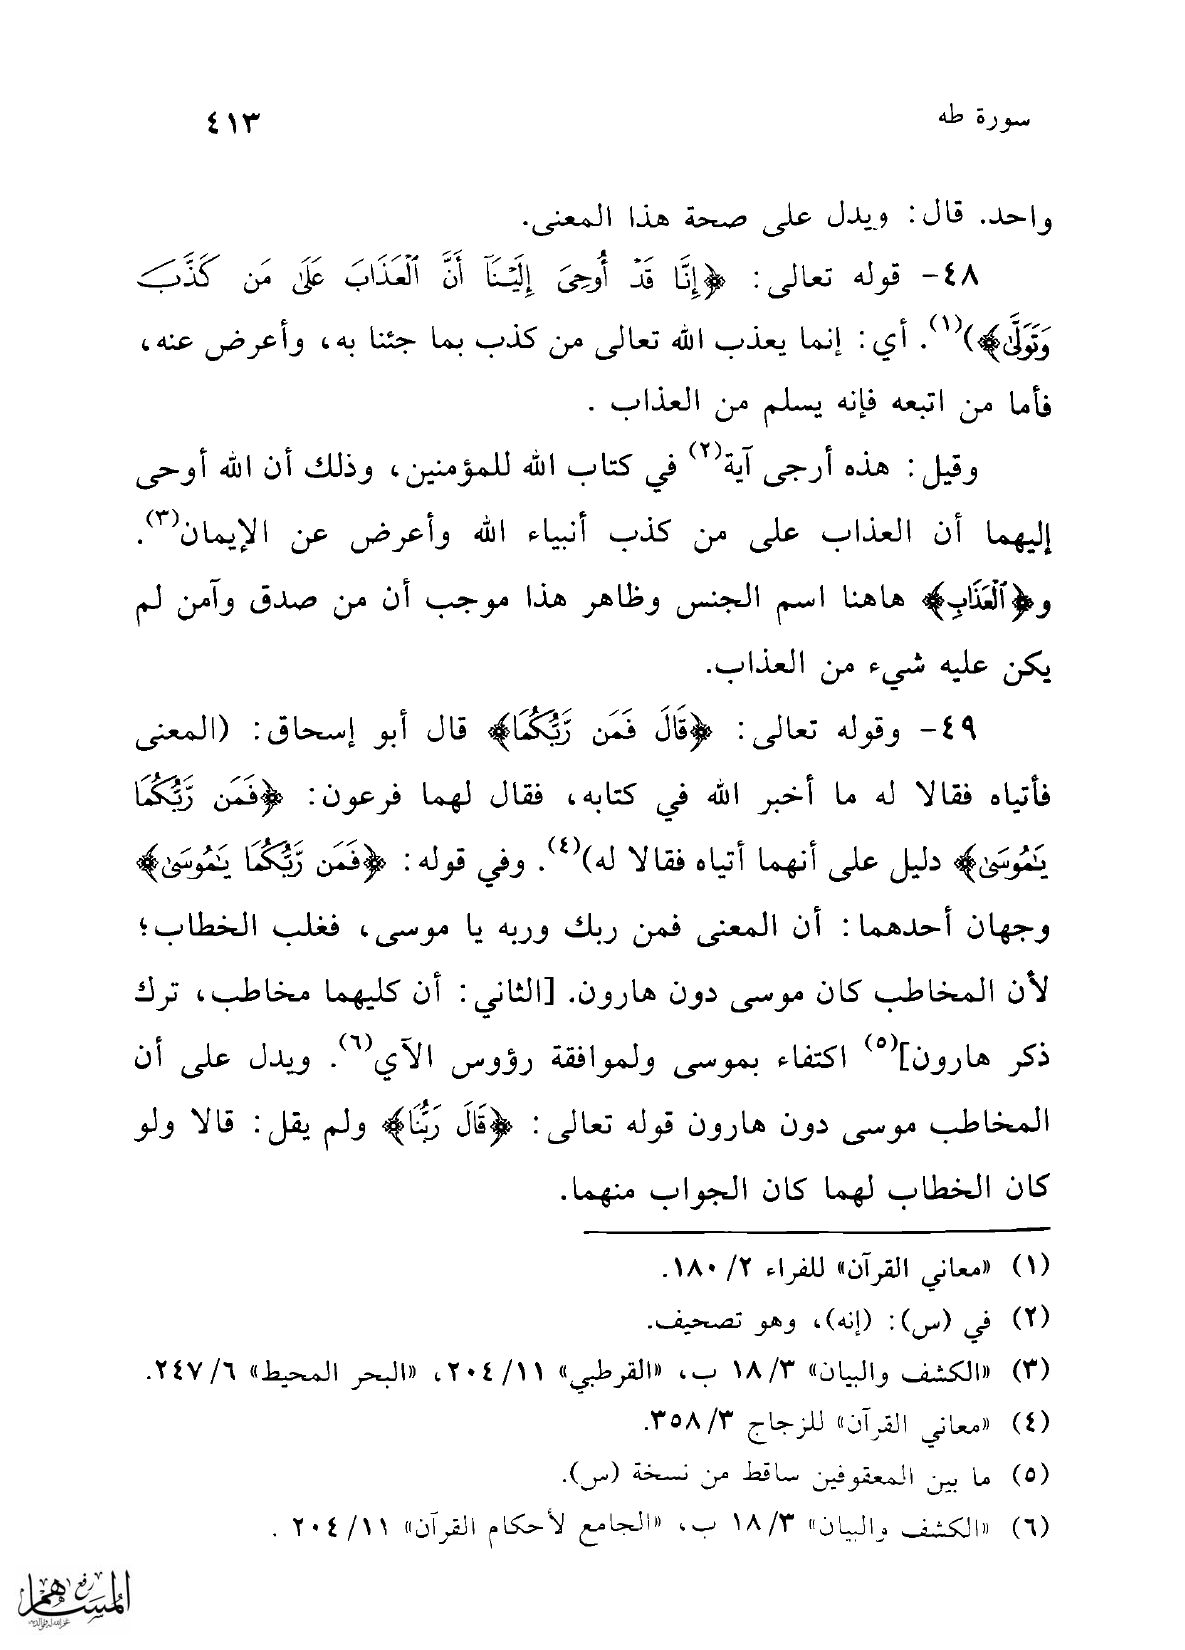 سورة طه
٤١٣
واحد. قال: ويدل على صحة هذا المعنى.
٤٨- قوله تعالى: ﴿إِنَّا قَدْ أُوحِيَ إِلَيْنَآ أَنَّ ٱلْعَذَابَ عَلَىٰ مَن كَذَّبَ
وَتَوَلَّىٰ﴾)(١). أي: إنما يعذب الله تعالى من كذب بما جئنا به، وأعرض عنه،
فأما من اتبعه فإنه يسلم من العذاب .
وقيل: هذه أرجى آية(٢) في كتاب الله للمؤمنين، وذلك أن الله أوحى
إليهما أن العذاب على من كذب أنبياء الله وأعرض عن الإيمان(٣).
و﴿ٱلْعَذَابِ﴾ هاهنا اسم الجنس وظاهر هذا موجب أن من صدق وآمن لم
يكن عليه شيء من العذاب.
٤٩- وقوله تعالى: ﴿قَالَ فَمَن رَّبُّكُمَا﴾ قال أبو إسحاق: (المعنى
فأتياه فقالا له ما أخبر الله في كتابه، فقال لهما فرعون: ﴿فَمَن رَّبُّكُمَا
يَٰمُوسَىٰ﴾ دليل على أنهما أتياه فقالا له)(٤). وفي قوله: ﴿فَمَن رَّبُّكُمَا يَٰمُوسَىٰ﴾
وجهان أحدهما: أن المعنى فمن ربك وربه يا موسى، فغلب الخطاب؛
لأن المخاطب كان موسى دون هارون. [الثاني: أن كليهما مخاطب، ترك
ذكر هارون](٥) اكتفاء بموسى ولموافقة رؤوس الآي(٦). ويدل على أن
المخاطب موسى دون هارون قوله تعالى: ﴿قَالَ رَبُّنَا﴾ ولم يقل: قالا ولو
كان الخطاب لهما كان الجواب منهما.
(١) «معاني القرآن» للفراء ٢/ ١٨٠.
(٢) في (س): (إنه)، وهو تصحيف.
(٣) «الكشف والبيان» ٣/ ١٨ ب، «القرطبي» ١١/ ٢٠٤، «البحر المحيط» ٦/ ٢٤٧.
(٤) «معاني القرآن» للزجاج ٣/ ٣٥٨.
(٥) ما بين المعقوفين ساقط من نسخة (س).
(٦) «الكشف والبيان» ٣/ ١٨ ب، «الجامع لأحكام القرآن» ١١/ ٢٠٤ .